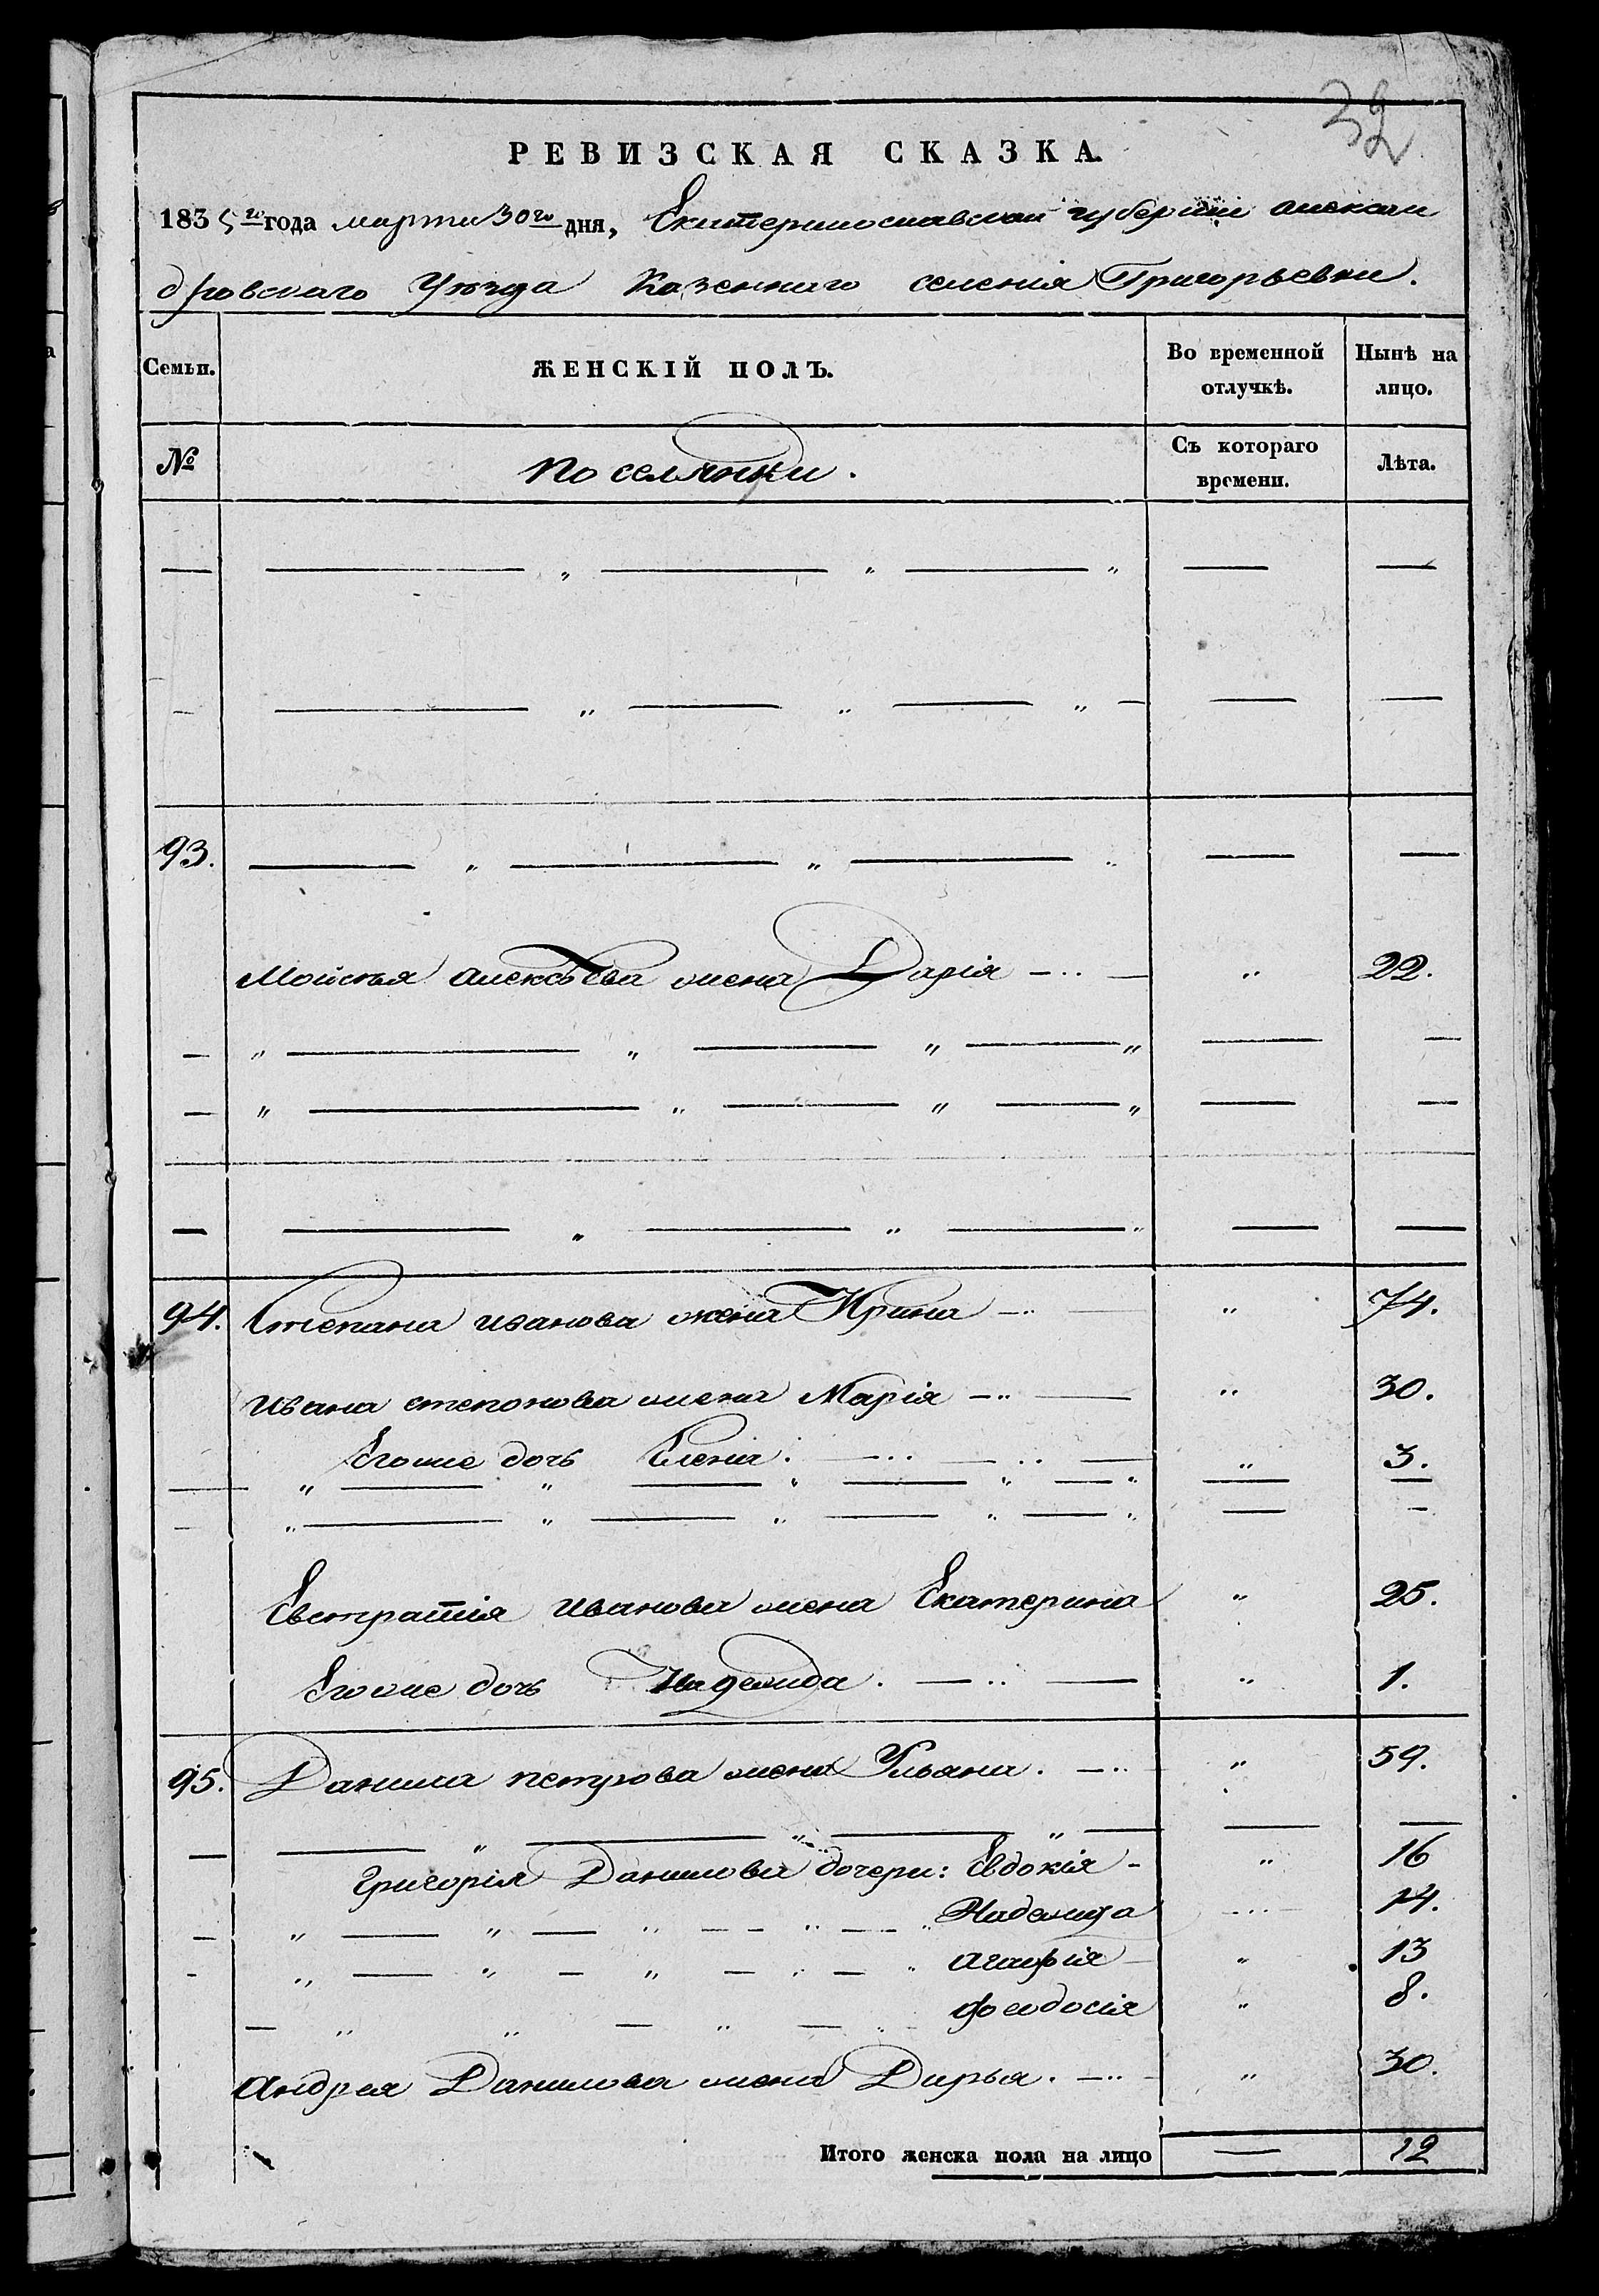 32
РЕВИЗСКАЯ СКАЗКА.
1835го года марта 30го дня, Екатеринославской губернии алексан
дровскаго Уѣзда Казеннаго селенія Григорьевки.
Семьи. ЖЕНСКІЙ ПОЛЪ. Во временной отлучкѣ. Нынѣ на лицо.
№ поселянки. Съ котораго времени. Лѣта.
— — „ — „ — „ — —
— — „ — „ — „ — — —
93. — „ — „ — „ — —
Мойсѣя алексѣева жена Дарія — „ 22.
— „ — „ — „ — „ — —
— „ — „ — „ — „ — —
— — „ — „ — „ — —
94. Степана иванова жена Ирина — „ 74.
Ивана степонова жена Марія — „ 30.
Егоже дочь Елена. — „ 3.
— „ — „ — „ — „ — „ — —
— „ — „ — „ — „ — „ — —
Евстратія иванова жена Екатерина „ 25.
Егоже дочь Надежда. — „ 1.
95. Данила петрова жена Ульяна. — „ 59.
— — „ — „ — „ — — —
Григорія Данилова дочери: Евдокія - „ 16
— „ — „ — „ — — „ — — „ Надежда — 14.
- „ — „ — „ — „ — „ Агафія — „ 13
— „ „ — „ — „ Феодосія „ 8.
Андрея Данилова жена Дарья. — „ 30.
Итого женска пола на лицо — 12